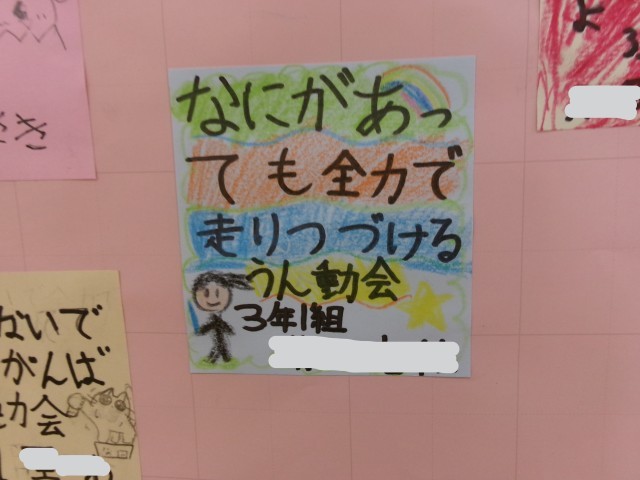 なにがあっ
ても全力で
走りつづける
うん動会
3年1組
ないで
がんば
会